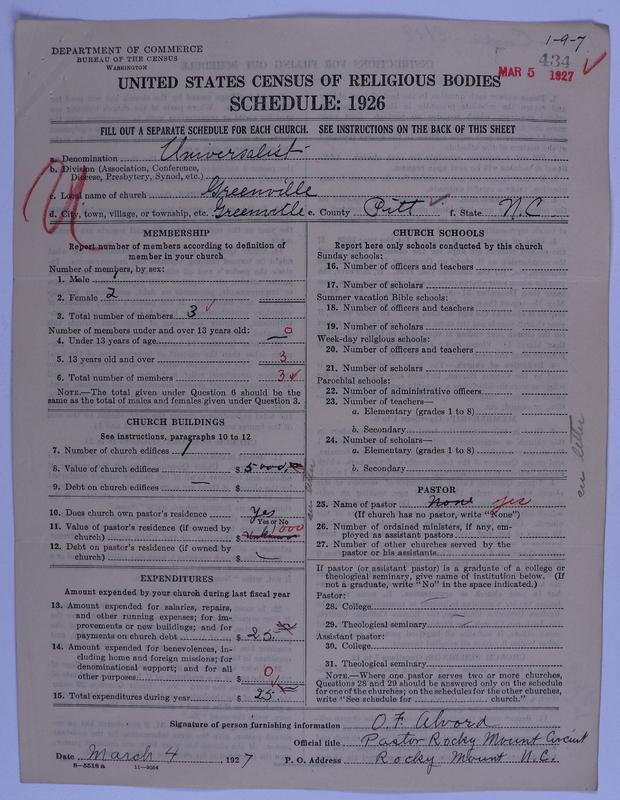 1-9-7
DEPARTMENT OF COMMERCE
BUREAU OF THE CENSUS
WASHINGTON
434
MAR 5 1927
UNITED STATES CENSUS OF RELIGIOUS BODIES
SCHEDULE: 1926
FILL OUT A SEPARATE SCHEDULE FOR EACH CHURCH. SEE INSTRUCTIONS ON THE BACK OF THIS SHEET
a. Denomination Universalist
b. Division (Association, Conference, Diocese, Presbytery, Synod, etc.)
c. Local name of church Greenville
d. City, town, village, or township, etc. Greenville e. County Pitt f. State N.C
MEMBERSHIP
Report number of members according to definition of
member in your church
Number of members, by sex:
1. Male 1
2. Female 2
3. Total number of members 3
Number of members under and over 13 years old:
4. Under 13 years of age 0
5. 13 years old and over 3
6. Total number of members 3
NOTE.—The total given under Question 6 should be
same as the total of males and females given under Question 3.
CHURCH BUILDINGS
See instructions, paragraphs 10 to 12
7. Number of church edifices 1
8. Value of church edifices $ 5000
9. Debt on church edifices —
10. Does church own pastor's residence Yes
Yes or No
11. Value of pastor's residence (if owned by
church) $ 1000
12. Debt on pastor's residence (if owned by
church) $
EXPENDITURES
Amount expended by your church during last fiscal year
13. Amount expended for salaries, repairs,
and other running expenses; for im-
provements or new buildings; and for
payments on church debt $ 25
14. Amount expended for benevolences, in-
cluding home and foreign missions; for
denominational support; and for all
other purposes $ 0
15. Total expenditures during year $ 25
CHURCH SCHOOLS
Report here only schools conducted by this church
Sunday schools:
16. Number of officers and teachers
17. Number of scholars
Summer vacation Bible schools:
18. Number of officers and teachers
19. Number of scholars
Week-day religious schools:
20. Number of officers and teachers
21. Number of scholars
Parochial schools:
22. Number of administrative officers
23. Number of teachers—
a. Elementary (grades 1 to 8)
b. Secondary
24. Number of scholars—
a. Elementary (grades 1 to 8)
b. Secondary
PASTOR
25. Name of pastor None yes
(If church has no pastor, write "None")
26. Number of ordained ministers, if any, em-
ployed as assistant pastors
27. Number of other churches served by the
pastor or his assistants
If pastor (or assistant pastor) is a graduate of a college or
theological seminary, give name of institution below. (If
not a graduate, write "No" in the space indicated.)
Pastor:
28. College
29. Theological seminary
Assistant pastor:
30. College
31. Theological seminary
NOTE.—Where one pastor serves two or more churches,
Questions 28 and 29 should be answered only on the schedule
for one of the churches; on the schedules for the other churches,
write "See schedule for church."
Signature of person furnishing information O. F. Alvord
Official title Pastor Rocky Mount Circuit
Date March 4, 1927 P. O. Address Rocky Mount N.C.
8-5518 a 11-9054